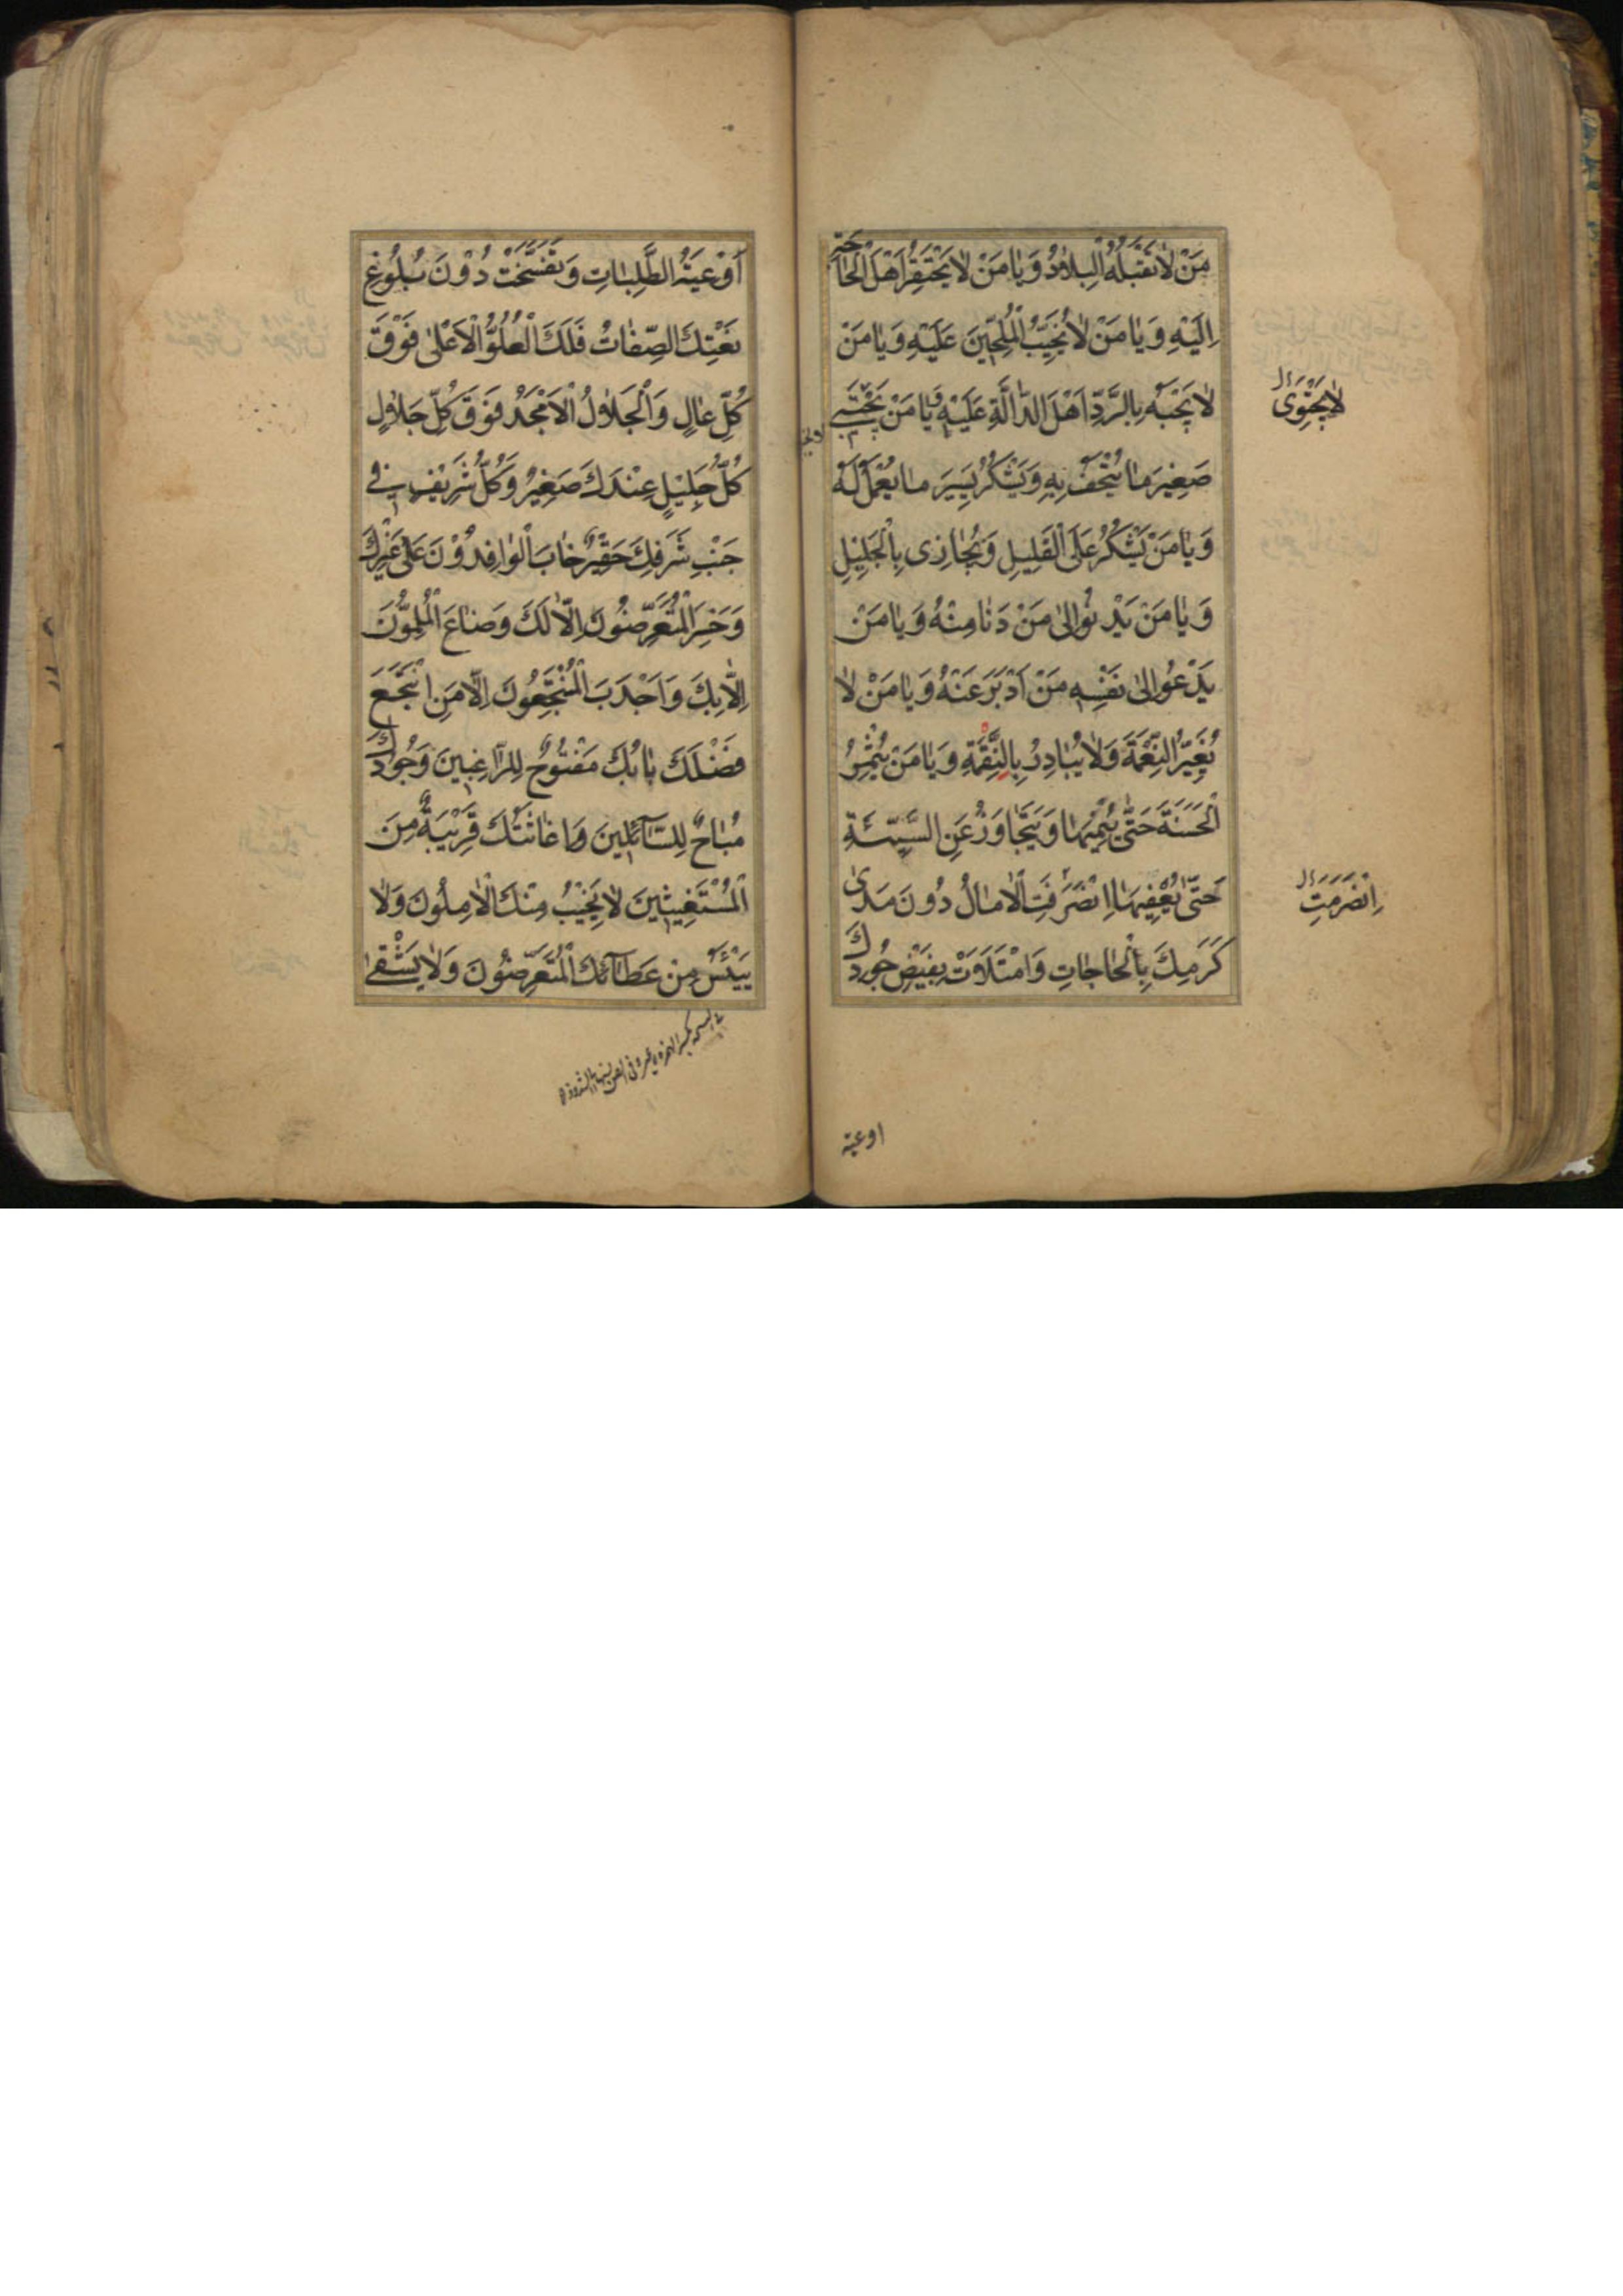 مَنْ لَا تَقْبَلُهُ الْبِلَادُ وَيَا مَنْ لَا يَحْتَقِرُ اَهْلَ الْحَاجَةِ
اِلَيْهِ وَيَا مَنْ لَا يُخَيِّبُ الْمُلِحِّينَ عَلَيْهِ وَيَا مَنْ
لَا يَجْبَهُ بِالرَّدِّ اَهْلَ الدَّالَّةِ عَلَيْهِ وَيَا مَنْ يَجْتَبِي
صَغِيرَ مَا يُتْحَفُ بِهِ وَيَشْكُرُ يَسِيرَ مَا يُعْمَلُ لَهُ
وَيَا مَنْ يَشْكُرُ عَلَى الْقَلِيلِ وَيُجَازِي بِالْجَلِيلِ
وَيَا مَنْ يَدْنُو اِلَى مَنْ دَنَا مِنْهُ وَيَا مَنْ
يَدْعُو اِلَى نَفْسِهِ مَنْ اَدْبَرَ عَنْهُ وَيَا مَنْ لَا
يُغَيِّرُ النِّعْمَةَ وَلَا يُبَادِرُ بِالنَّقِمَةِ وَيَا مَنْ يُثْمِرُ
الْحَسَنَةَ حَتَّى يُنْمِيَهَا وَيَتَجَاوَزُ عَنِ السَّيِّئَةِ
حَتَّى يُعْفِيَهَا اِنْصَرَفَتِ الْاٰمَالُ دُونَ مَدَى
كَرَمِكَ بِالْحَاجَاتِ وَامْتَلَاَتْ بِفَيْضِ جُودِكَ
لَا يَجْتَوِي
اِنْصَرَمَتِ
اوعية
اَوْعِيَةُ الطَّلِبَاتِ وَتَفَسَّخَتْ دُوْنَ بُلُوْغِ
نَعْتِكَ الصِّفَاتُ فَلَكَ الْعُلُوُّ الْاَعْلَى فَوْقَ
كُلِّ عَالٍ وَالْجَلَالُ الْاَمْجَدُ فَوْقَ كُلِّ جَلَالٍ
كُلُّ جَلِيْلٍ عِنْدَكَ صَغِيْرٌ وَكُلُّ شَرِيْفٍ فِي
جَنْبِ شَرَفِكَ حَقِيْرٌ خَابَ الْوَافِدُوْنَ عَلَى غَيْرِكَ
وَخَسِرَ الْمُتَعَرِّضُونَ اِلَّا لَكَ وَضَاعَ الْمُلِمُّونَ
اِلَّا بِكَ وَاَجْدَبَ الْمُنْتَجِعُونَ اِلَّا مَنِ انْتَجَعَ
فَضْلَكَ بَابُكَ مَفْتُوحٌ لِلرَّاغِبِينَ وَجُودُكَ
مُبَاحٌ لِلسَّائِلِينَ وَاِغَاثَتُكَ قَرِيْبَةٌ مِنَ
الْمُسْتَغِيثِينَ لَا يَخِيْبُ مِنْكَ الْاٰمِلُونَ وَلَا
يَيْئَسُ مِنْ عَطَائِكَ الْمُتَعَرِّضُونَ وَلَا يَشْقَى